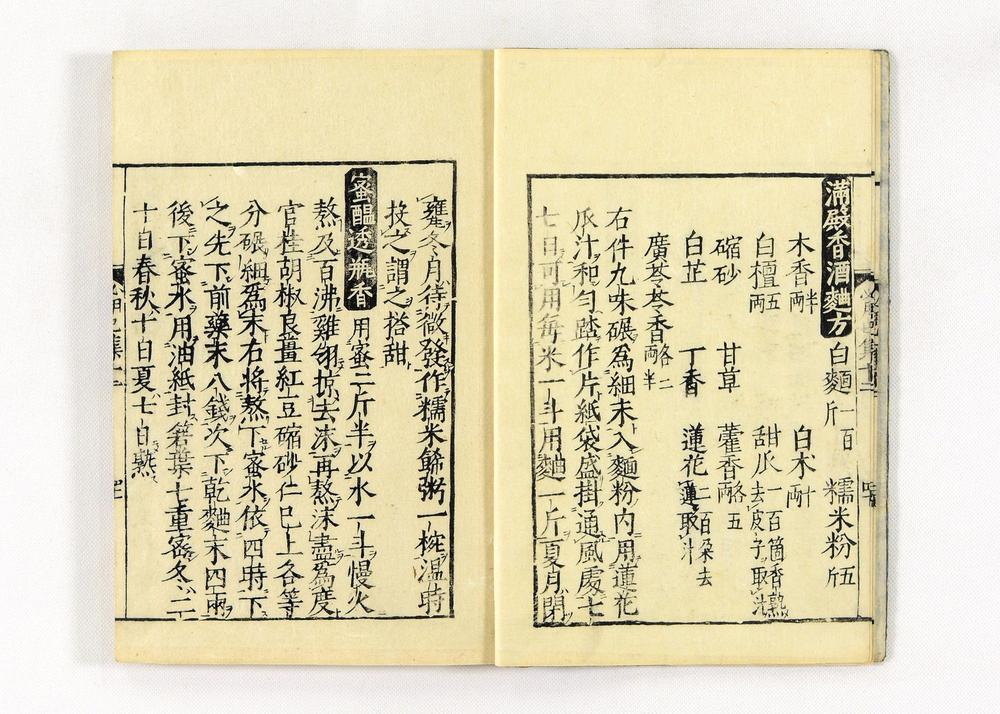 滿殿香酒麯方 白麵一百斤 糯米粉五斤
木香半兩 白朮十兩
白檀五兩 甜瓜一百箇香熟去皮子取汁
縮砂 甘草 藿香各五兩
白芷 丁香 蓮花二百朵去蔕取汁
廣苓苓香各二兩半
右件九味碾為細末入麵粉内用蓮花
瓜汁和勻踏作片紙袋盛掛通風處七
七日可用每米一斗用麯一斤夏月閉
甕冬月待微發作糯米餙粥一椀溫時
投之謂之搭甜
蜜醞透瓶香 用蜜二斤半以水一斗慢火
熬及百沸雞翎掠去沫再熬沫盡為度
官桂胡椒良薑紅豆縮砂仁已上各等
分碾細為末右將熬下蜜水依四時下
之先下前藥末八錢次下乾麯末四兩
後下蜜水用油紙封箬葉七重密冬二
十日春秋十日夏七日熟